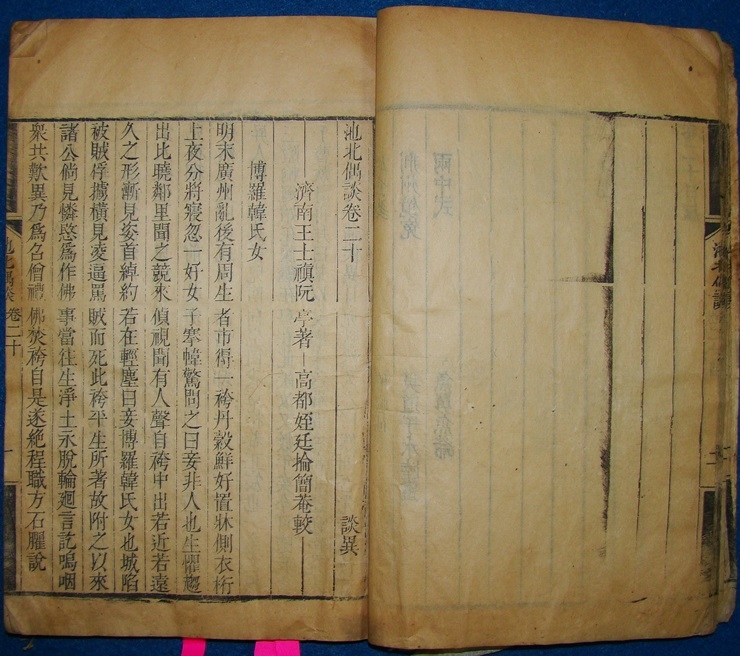 池北偶談
池北偶談卷二十 談異
濟南王士禛阮亭著 高都姪廷掄簡菴較
博羅韓氏女
明末廣州亂後有周生者市得一袴丹縠鮮好置牀側衣桁
上夜分將寢忽一好女子搴幃驚問之曰妾非人也生懼趨
出比曉鄰里聞之競來偵視聞有人聲自袴中出若近若遠
久之形漸見姿首綽約若在輕塵曰妾博羅韓氏女也城陷
被賊俘擄橫見凌逼罵賊而死此袴平生所著故附之以來
諸公倘見憐愍爲作佛事當往生淨土永脫輪廻言訖嗚咽
衆共歎異乃爲召僧禮佛焚袴自是遂絕程職方石臞說
池北偶談 卷二十 一